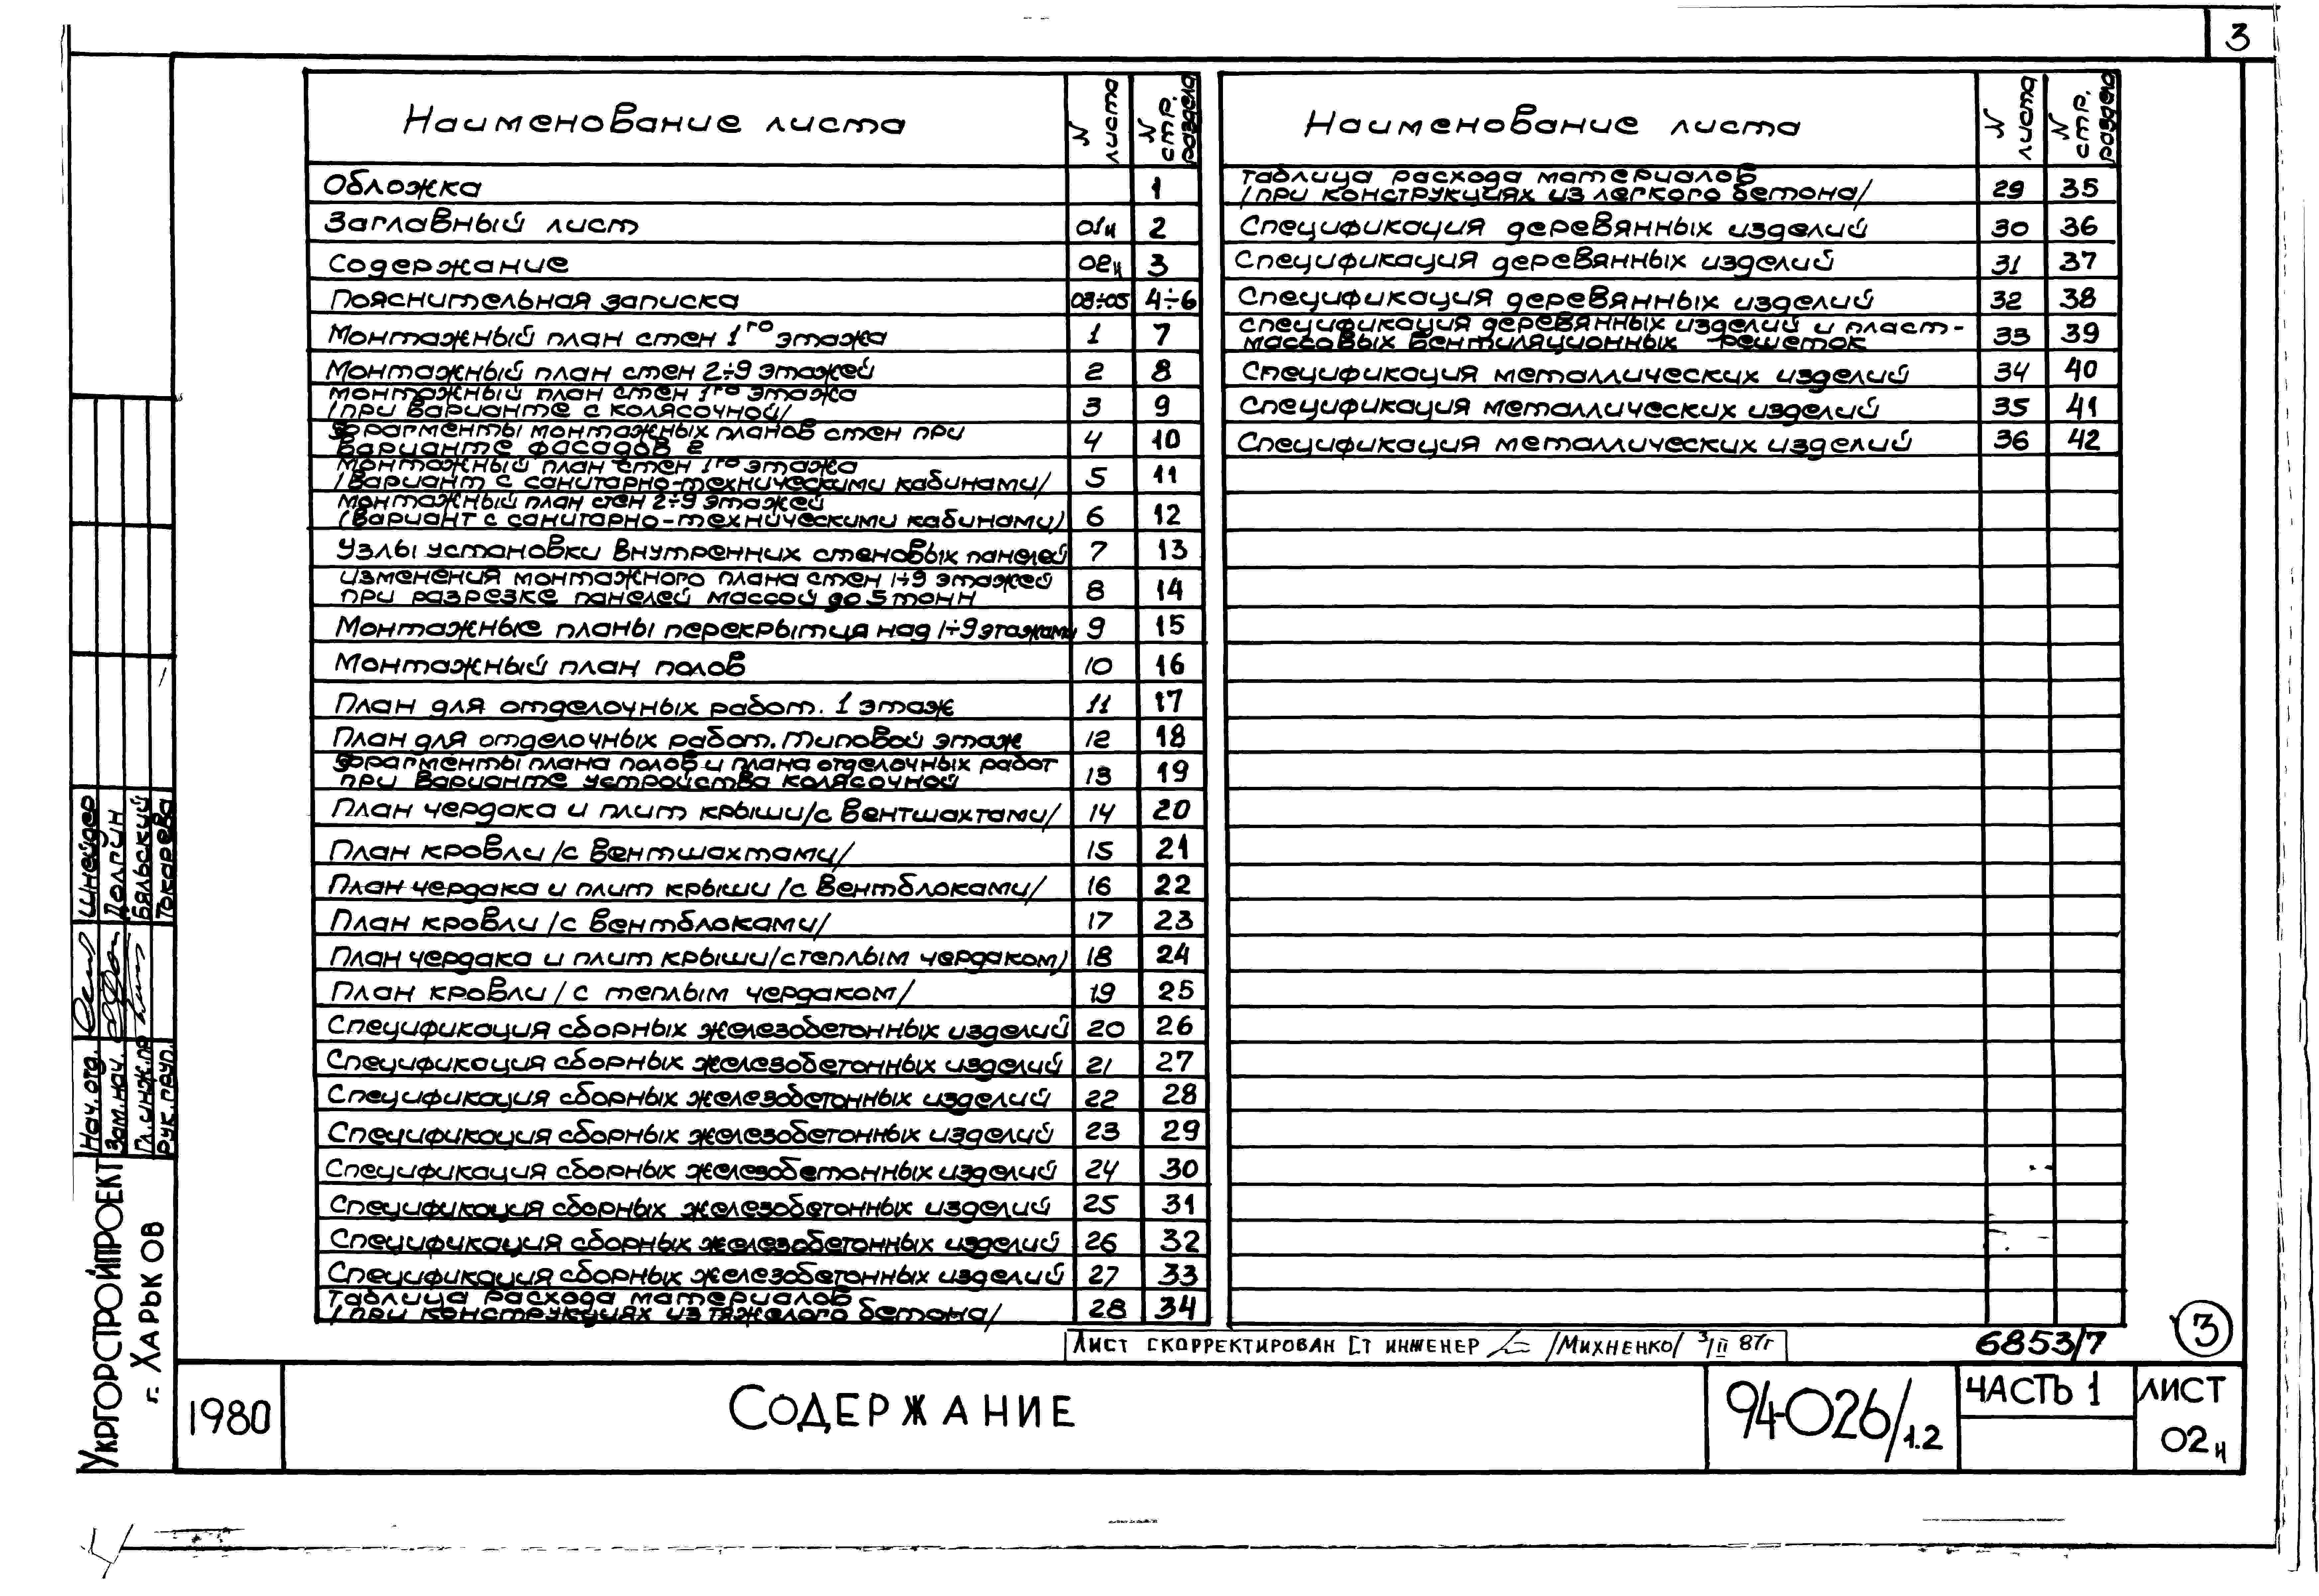 3
Наименование листа | N листа | N стр. раздела
Обложка | | 1
Заглавный лист | 01н | 2
Содержание | 02н | 3
Пояснительная записка | 03÷05 | 4÷6
Монтажный план стен 1го этажа | 1 | 7
Монтажный план стен 2÷9 этажей | 2 | 8
Монтажный план стен 1го этажа
/при варианте с колясочной/ | 3 | 9
Фрагменты монтажных планов стен при
варианте фасадов 2 | 4 | 10
Монтажный план стен 1го этажа
/вариант с санитарно-техническими кабинами/ | 5 | 11
Монтажный план стен 2÷9 этажей
(вариант с санитарно-техническими кабинами) | 6 | 12
Узлы установки внутренних стеновых панелей | 7 | 13
Изменения монтажного плана стен 1÷9 этажей
при разрезке панелей массой до 5 тонн | 8 | 14
Монтажные планы перекрытия над 1÷9 этажами | 9 | 15
Монтажный план полов | 10 | 16
План для отделочных работ. 1 этаж | 11 | 17
План для отделочных работ. Типовой этаж | 12 | 18
Фрагменты плана полов и плана отделочных работ
при варианте устройства колясочной | 13 | 19
План чердака и плит крыши /с вентшахтами/ | 14 | 20
План кровли /с вентшахтами/ | 15 | 21
План чердака и плит крыши /с вентблоками/ | 16 | 22
План кровли /с вентблоками/ | 17 | 23
План чердака и плит крыши /с теплым чердаком) | 18 | 24
План кровли /с теплым чердаком/ | 19 | 25
Спецификация сборных железобетонных изделий | 20 | 26
Спецификация сборных железобетонных изделий | 21 | 27
Спецификация сборных железобетонных изделий | 22 | 28
Спецификация сборных железобетонных изделий | 23 | 29
Спецификация сборных железобетонных изделий | 24 | 30
Спецификация сборных железобетонных изделий | 25 | 31
Спецификация сборных железобетонных изделий | 26 | 32
Спецификация сборных железобетонных изделий | 27 | 33
Таблица расхода материалов
/при конструкциях из тяжелого бетона/ | 28 | 34
Наименование листа | N листа | N стр. раздела
Таблица расхода материалов
/при конструкциях из легкого бетона/ | 29 | 35
Спецификация деревянных изделий | 30 | 36
Спецификация деревянных изделий | 31 | 37
Спецификация деревянных изделий | 32 | 38
Спецификация деревянных изделий и пласт-
массовых вентиляционных решеток | 33 | 39
Спецификация металлических изделий | 34 | 40
Спецификация металлических изделий | 35 | 41
Спецификация металлических изделий | 36 | 42
Нач. отд. Шнейдер
Зам. нач.
Гл. инж. пр. Бяльский
Рук. груп. Токарева
Укргорстройпроект
г. Харьков
Лист скорректирован Ст инженер /Михненко/ 3/II 87г
6853/7
3
1980
Содержание
94-026/1.2
Часть 1
Лист
02н